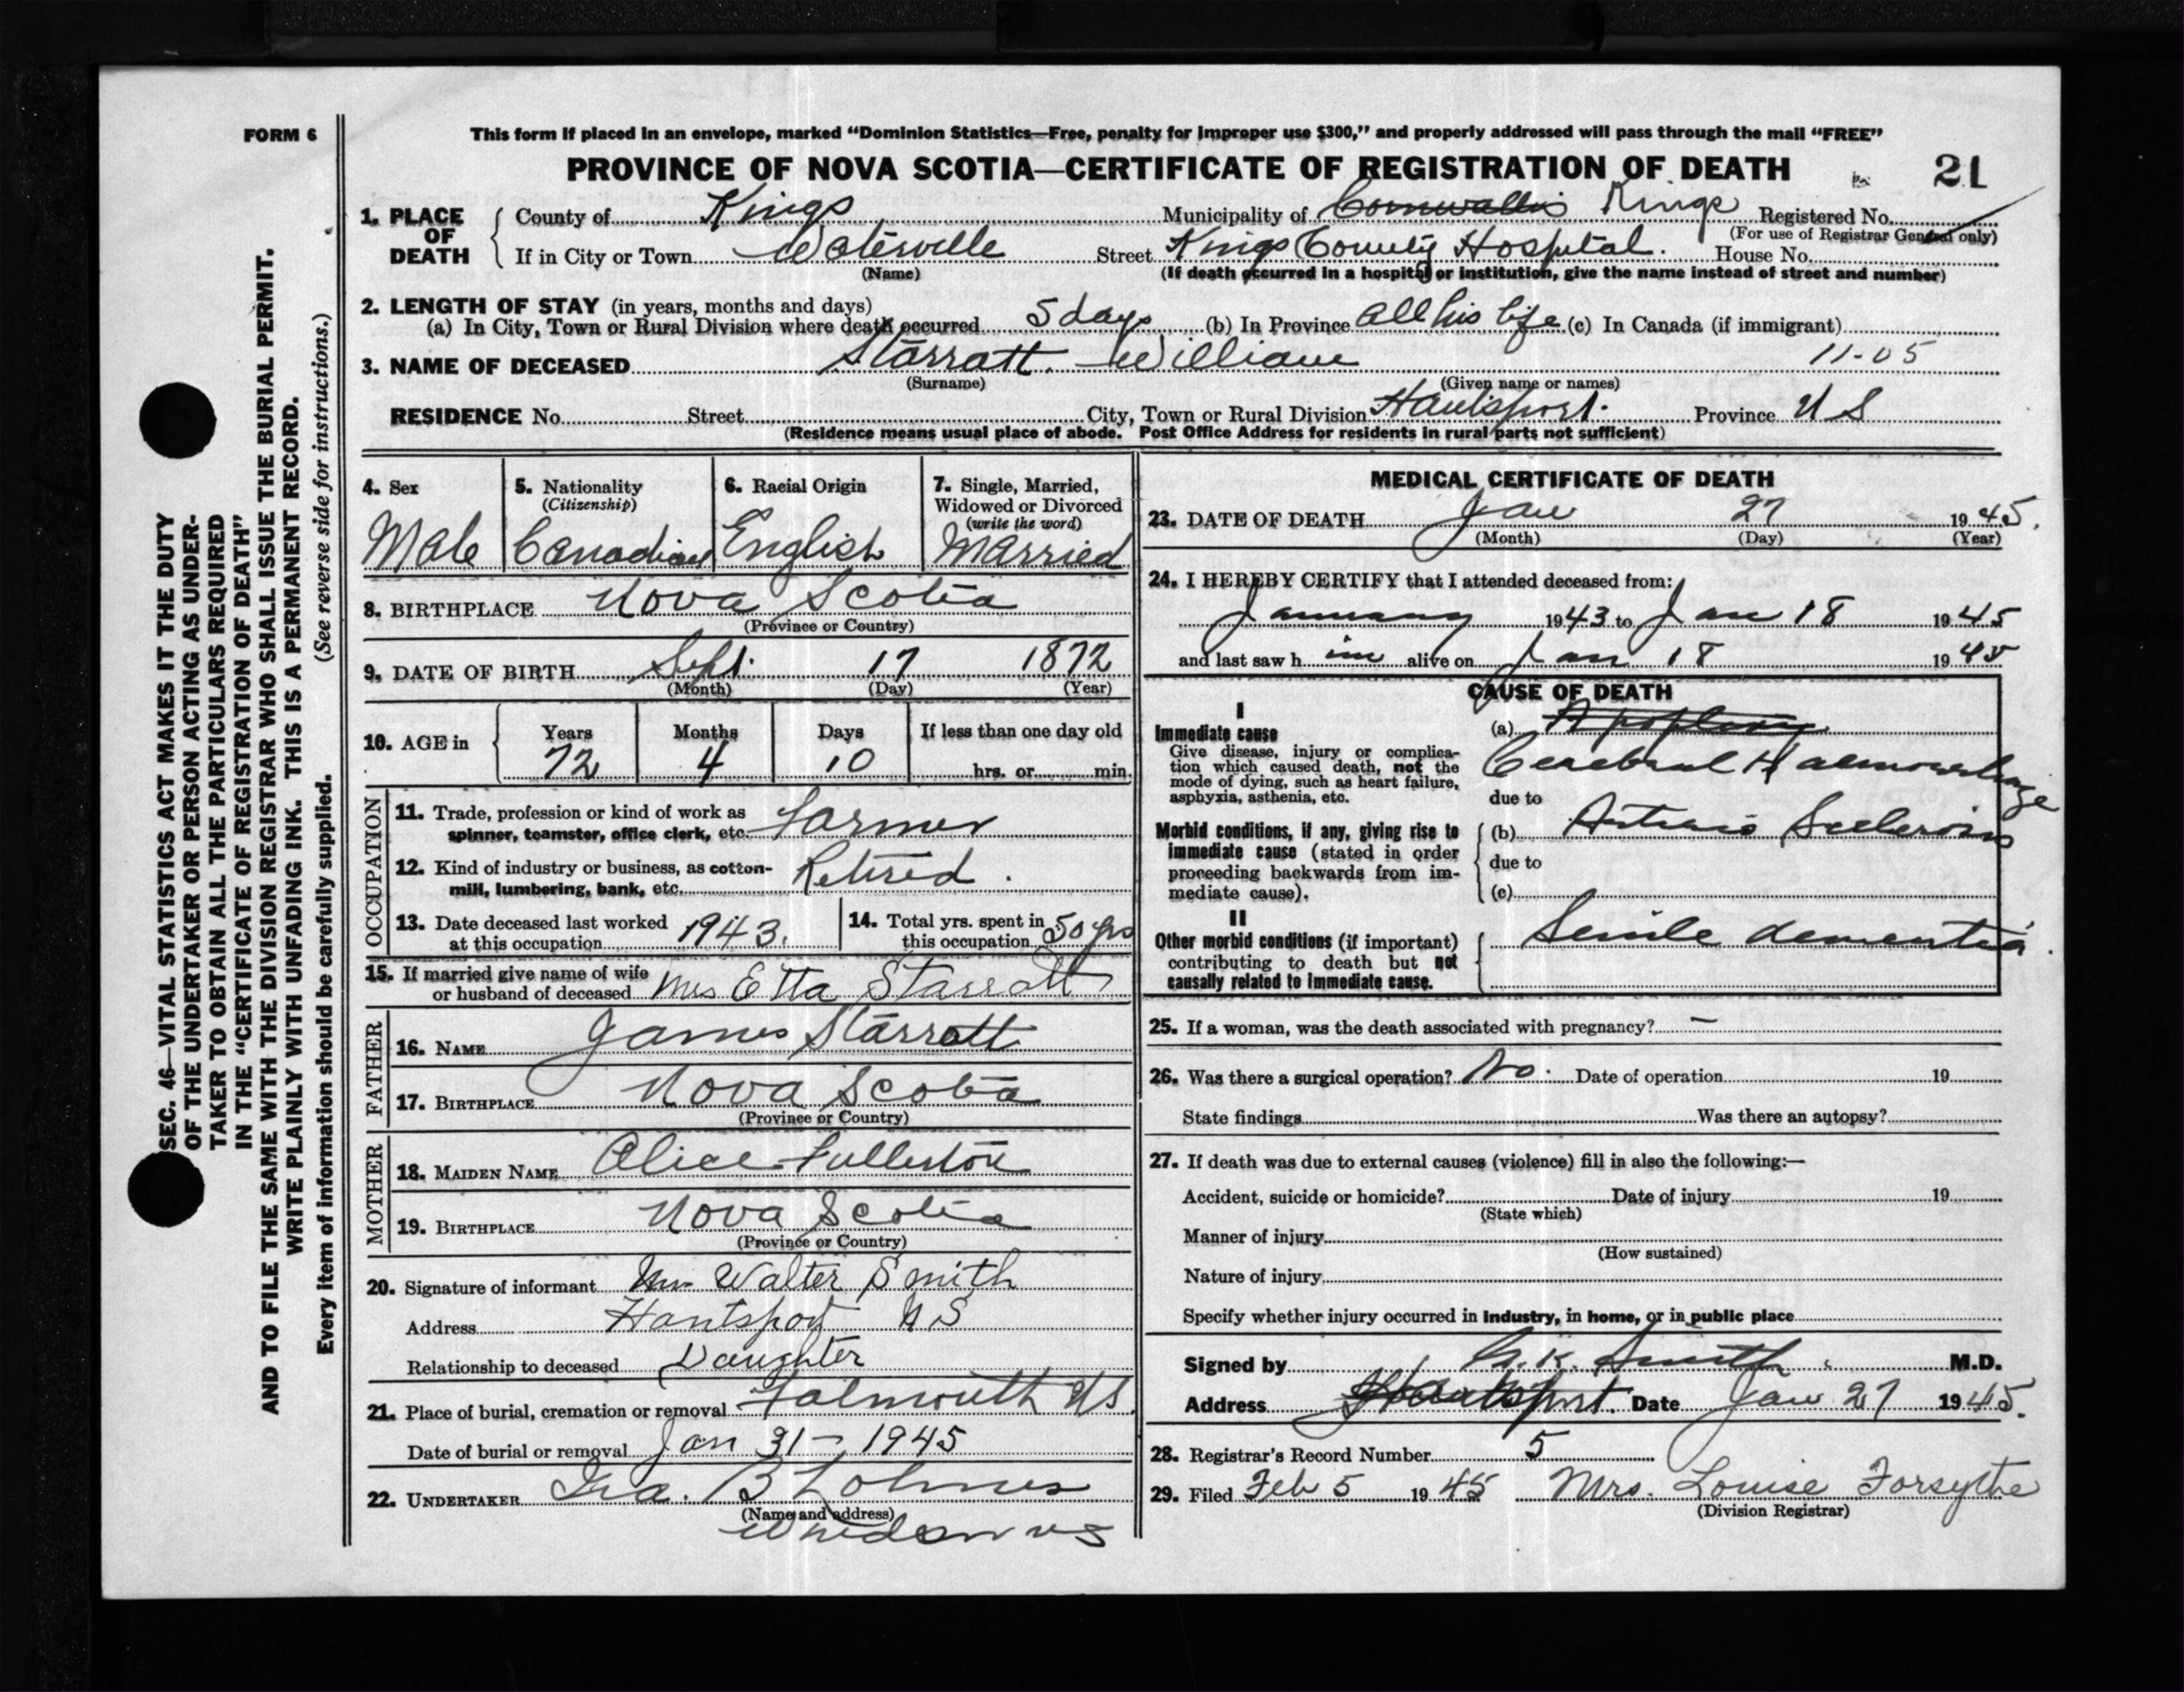 FORM 6
This form if placed in an envelope, marked “Dominion Statistics—Free, penalty for improper use $300,” and properly addressed will pass through the mail “FREE”
PROVINCE OF NOVA SCOTIA—CERTIFICATE OF REGISTRATION OF DEATH
21
1. PLACE OF DEATH
County of Kings Municipality of Cornwallis Kings Registered No.
(For use of Registrar General only)
If in City or Town Waterville Street Kings County Hospital. House No.
(Name) (If death occurred in a hospital or institution, give the name instead of street and number)
2. LENGTH OF STAY (in years, months and days)
(a) In City, Town or Rural Division where death occurred 5 days (b) In Province All his life (c) In Canada (if immigrant)
3. NAME OF DECEASED Starratt. William 11-05
(Surname) (Given name or names)
RESIDENCE No. Street City, Town or Rural Division Hantsport. Province N S
(Residence means usual place of abode. Post Office Address for residents in rural parts not sufficient)
4. Sex
Male
5. Nationality
(Citizenship)
Canadian
6. Racial Origin
English
7. Single, Married,
Widowed or Divorced
(write the word)
Married
8. BIRTHPLACE Nova Scotia
(Province or Country)
9. DATE OF BIRTH Sept. 17 1872
(Month) (Day) (Year)
10. AGE in
Years Months Days If less than one day old
72 4 10 hrs. or min.
OCCUPATION
11. Trade, profession or kind of work as
spinner, teamster, office clerk, etc. Farmer
12. Kind of industry or business, as cotton-
mill, lumbering, bank, etc. Retired.
13. Date deceased last worked
at this occupation 1943.
14. Total yrs. spent in
this occupation 50 yrs
15. If married give name of wife
or husband of deceased Mrs Etta Starratt
FATHER
16. NAME James Starratt
17. BIRTHPLACE Nova Scotia
(Province or Country)
MOTHER
18. MAIDEN NAME Alice Fullerton
19. BIRTHPLACE Nova Scotia
(Province or Country)
20. Signature of informant Mrs Walter Smith
Address Hantsport N S
Relationship to deceased Daughter
21. Place of burial, cremation or removal Falmouth N S.
Date of burial or removal Jan 31 - 1945
22. UNDERTAKER Ira. B Lohnes
(Name and address)
Windsor NS
MEDICAL CERTIFICATE OF DEATH
23. DATE OF DEATH Jan 27 1945.
(Month) (Day) (Year)
24. I HEREBY CERTIFY that I attended deceased from:
January 1943 to Jan 18 1945
and last saw h im alive on Jan 18 1945
CAUSE OF DEATH
I
Immediate cause
Give disease, injury or complica-
tion which caused death, not the
mode of dying, such as heart failure,
asphyxia, asthenia, etc.
(a) Apoplexy
Cerebral Haemorrhage
due to
Morbid conditions, if any, giving rise to
immediate cause (stated in order
proceeding backwards from im-
mediate cause).
(b) Arterio Sclerosis
due to
(c)
II
Other morbid conditions (if important)
contributing to death but not
causally related to immediate cause.
Senile dementia.
25. If a woman, was the death associated with pregnancy? —
26. Was there a surgical operation? No. Date of operation 19
State findings Was there an autopsy?
27. If death was due to external causes (violence) fill in also the following:—
Accident, suicide or homicide? Date of injury 19
(State which)
Manner of injury
(How sustained)
Nature of injury
Specify whether injury occurred in industry, in home, or in public place
Signed by G. K. Smith. M.D.
Address Hantsport. Date Jan 27 1945.
28. Registrar's Record Number 5
29. Filed Feb 5 1945 Mrs. Louise Forsythe
(Division Registrar)
SEC. 46—VITAL STATISTICS ACT MAKES IT THE DUTY
OF THE UNDERTAKER OR PERSON ACTING AS UNDER-
TAKER TO OBTAIN ALL THE PARTICULARS REQUIRED
IN THE “CERTIFICATE OF REGISTRATION OF DEATH”
AND TO FILE THE SAME WITH THE DIVISION REGISTRAR WHO SHALL ISSUE THE BURIAL PERMIT.
WRITE PLAINLY WITH UNFADING INK. THIS IS A PERMANENT RECORD.
Every item of information should be carefully supplied. (See reverse side for instructions.)